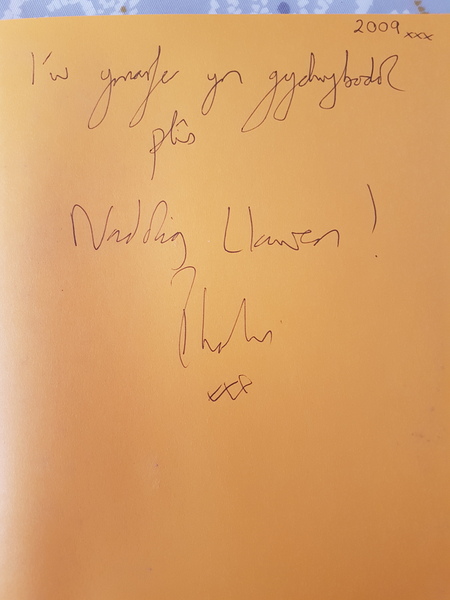 2009 xxx
I'w ymarfer yn gydwybodol
plîs
Nadolig Llawen!
xxx